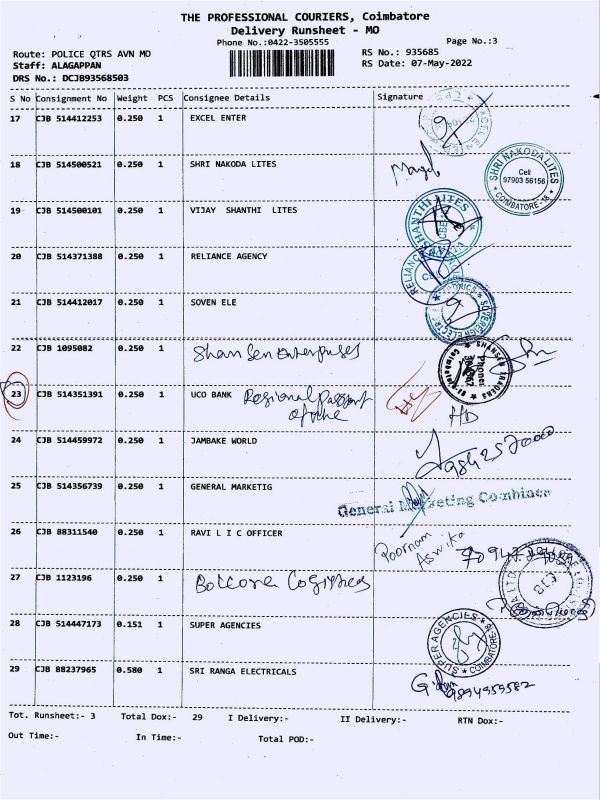 THE PROFESSIONAL COURIERS, Coimbatore
Delivery Runsheet - MO
Phone No.:0422-3505555
Page No.:3
Route: POLICE QTRS AVN MO
RS No.: 935685
Staff: ALAGAPPAN
RS Date: 07-May-2022
DRS No.: DCJB93568503
S No Consignment No Weight PCS Consignee Details Signature
17 CJB 514412253 0.250 1 EXCEL ENTER
18 CJB 514500521 0.250 1 SHRI NAKODA LITES
SHRI NAKODA LITES
Cell
97903 56156
COIMBATORE-18
19 CJB 514500101 0.250 1 VIJAY SHANTHI LITES
SHANTHI LITES
20 CJB 514371388 0.250 1 RELIANCE AGENCY
RELIANCE
21 CJB 514412017 0.250 1 SOVEN ELE
22 CJB 1095082 0.250 1 Shansen Enterprises
Phone:
23 CJB 514351391 0.250 1 UCO BANK Regional Passport
office
24 CJB 514459972 0.250 1 JAMBAKE WORLD
25 CJB 514356739 0.250 1 GENERAL MARKETIG
General Marketing Combines
26 CJB 88311540 0.250 1 RAVI L I C OFFICER
Poornam
Aswika
27 CJB 1123196 0.250 1
28 CJB 514447173 0.151 1 SUPER AGENCIES
SUPER AGENCIES
COIMBATORE
29 CJB 88237965 0.580 1 SRI RANGA ELECTRICALS
9894959582
Tot. Runsheet:- 3 Total Dox:- 29 I Delivery:- II Delivery:- RTN Dox:-
Out Time:- In Time:- Total POD:-